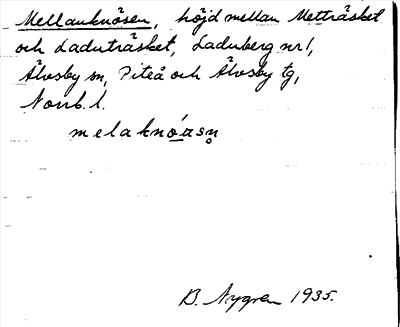 Mellanknösen, höjd mellan Metträsket
och Laduträsket, Laduberg nr 1,
Älvsby sn, Piteå och Älvsby tg,
Norrb. l.
melaknö́asn̥
B. Nygren 1935.